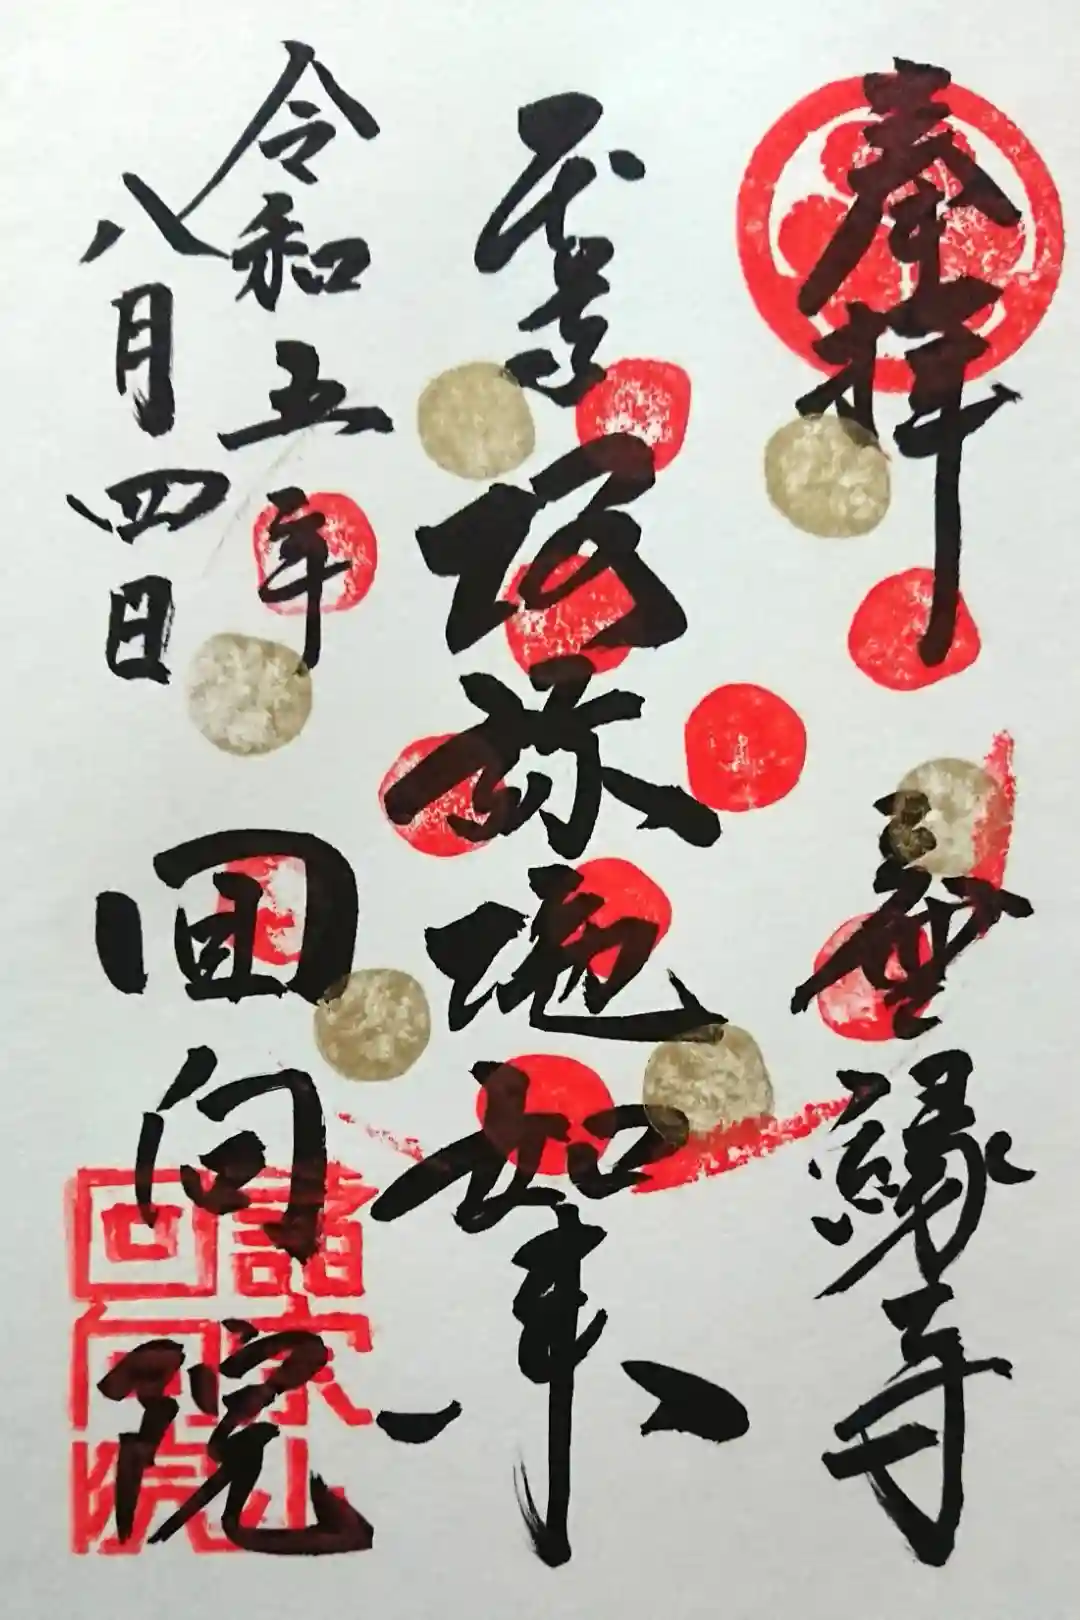 奉拝 無縁寺
本尊 阿弥陀如来
令和五年
八月四日
回向院
諸宗山
回向院